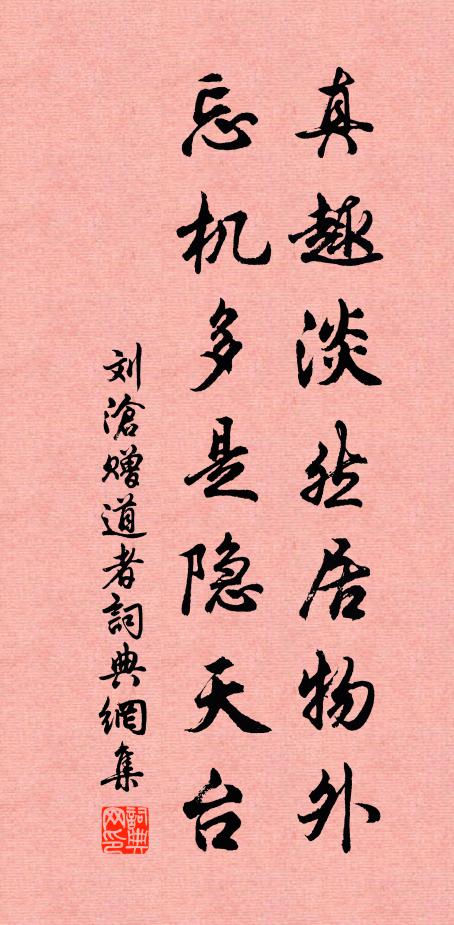 真趣淡然居物外
忘机多是隐天台
刘滄赠道者詞典網集
詞典网印